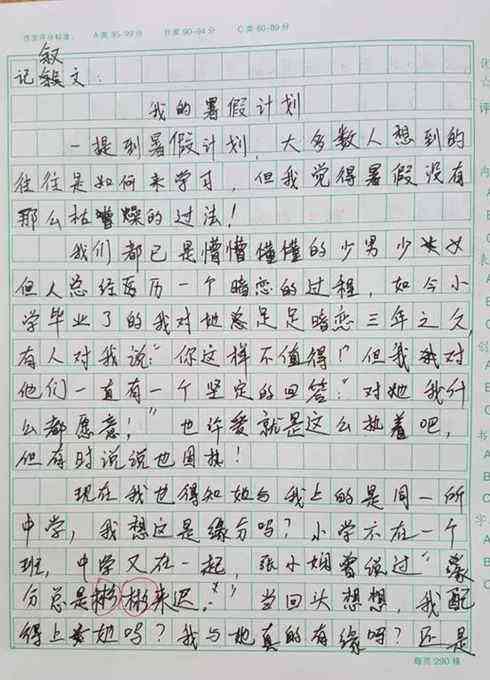 作文评分标准： A类 95-99分 B类 90-94分 C类 80-89分
叙
记 文：
我的暑假计划
一提到暑假计划，大多数人想到的
往往是如何来学习，但我觉得暑假没有
那么枯燥的过法！
我们都已是懵懵懂懂的少男少女
但人总经历一个暗恋的过程，如今小
学毕业了的我对她总是足足暗恋三年之久，
有人对我说：“你这样不值得！”但我对
他们一直有一个坚定的回答：“对她我什
么都愿意！”也许爱就是这么执着吧，
但有时说说也困扰！
现在我也得知她与我上的是同一所
中学，我想这是缘分吗？小学不在一个
班，中学又在一起，张小娴曾说过“缘
分总是 来迟，”当回头想想，我配
得上她吗？我与她真的有缘吗？还是
每页 290 格
评